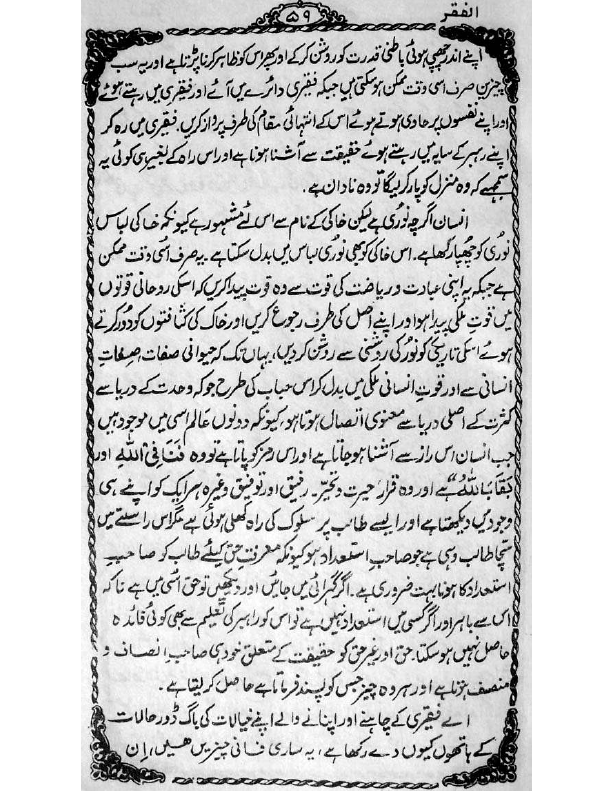 الفقر
۵۹
اپنے اندر چھپی ہوئی باطنی قدرت کو روشن کرکے اور پھر اس کو ظاہر کرنا پڑتا ہے اور یہ سب
چیزیں صرف اسی وقت ممکن ہوسکتی ہیں جبکہ فقیری دائرے میں آئے اور فقیری میں رہتے ہوئے
اور اپنے نفسوں پر حاوی ہوتے ہوئے اس کے انتہائی مقام کی طرف پرواز کریں۔ فقیری میں رہ کر
اپنے رہبر کے سایہ میں رہتے ہوئے حقیقت سے آشنا ہونا ہے اور اس راہ کے بغیر ہی کوئی یہ
سمجھے کہ وہ منزل کو پار کرلیگا تو وہ نادان ہے۔
انسان اگرچہ نوری ہے لیکن خاکی کے نام سے اس لئے مشہور ہے کیونکہ خاکی لباس
نوری کو چھپا رکھا ہے۔ اس خاکی کو بھی نوری لباس میں بدل سکتا ہے۔ یہ صرف اسی وقت ممکن
ہے جبکہ یہ اپنی عبادت و ریاضت کی قوت سے وہ قوت پیدا کریں کہ اسکی روحانی قوتوں
میں قوتِ ملکی پیدا ہو اور اپنے اصل کی طرف رجوع کریں اور خاک کی کثافتوں کو دور کرتے
ہوئے اسکی تاریکی کو نور کی روشنی سے روشن کردیں، یہاں تک کہ حیوانی صفات، صفاتِ
انسانی سے اور قوتِ انسانی ملکی میں بدل کر اس حباب کی طرح جو کہ وحدت کے دریا سے
کثرت کے اصلی دریا سے معنوی اتصال ہونا ہو، کیونکہ دونوں عالم اسی میں موجود ہیں
جب انسان اس راز سے آشنا ہو جاتا ہے اور اس رمز کو پاتا ہے تو وہ فَنَا فِی اللّٰہ اور
بَقَا بِاللّٰہ“ ہے اور وہ قرار حیرت و تحیّر۔ رفیق اور توفیق وغیرہ ہر ایک کو اپنے ہی
وجود میں دیکھتا ہے اور ایسے طالب پر سلوک کی راہ کھلی ہوئی ہے مگر اس راستے میں
سچا طالب وہی ہے جو صاحبِ استعداد ہو کیونکہ معرفتِ حق کیلئے طالب کو صاحبِ
استعداد کا ہونا بہت ضروری ہے۔ اگر گہرائی میں جائیں اور دیکھیں تو حق اسی میں ہے نا کہ
اس سے باہر اور اگر کسی میں استعداد نہیں ہے تو اس کو راہبر کی تعلیم سے بھی کوئی فائدہ
حاصل نہیں ہو سکتا۔ حق اور غیر حق کو حقیقت کے متعلق خود ہی صاحبِ انصاف و
منصف ہونا ہے اور ہر وہ چیز جس کو پسند فرماتا ہے حاصل کرلیتا ہے۔
اے فقیری کے چاہنے اور اپنانے والے اپنے خیالات کی باگ ڈور حالات
کے ہاتھوں کیوں دے رکھا ہے، یہ ساری فانی چیزیں ھیں، اِن